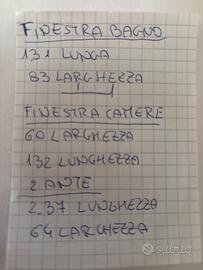 FINESTRA BAGNO
131 LUNGA
83 LARGHEZZA
FINESTRA CAMERE
60 LARGHEZZA
132 LUNGHEZZA
2 ANTE
2.37 LUNGHEZZA
64 LARGHEZZA
Subito